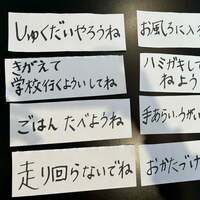 しゅくだいやろうね
きがえて
学校行くよういしてね
ごはん たべようね
走り回らないでね
お風ろに入ろ
ハミガキして
ねよう
手あらい.うがい
おかたづけ